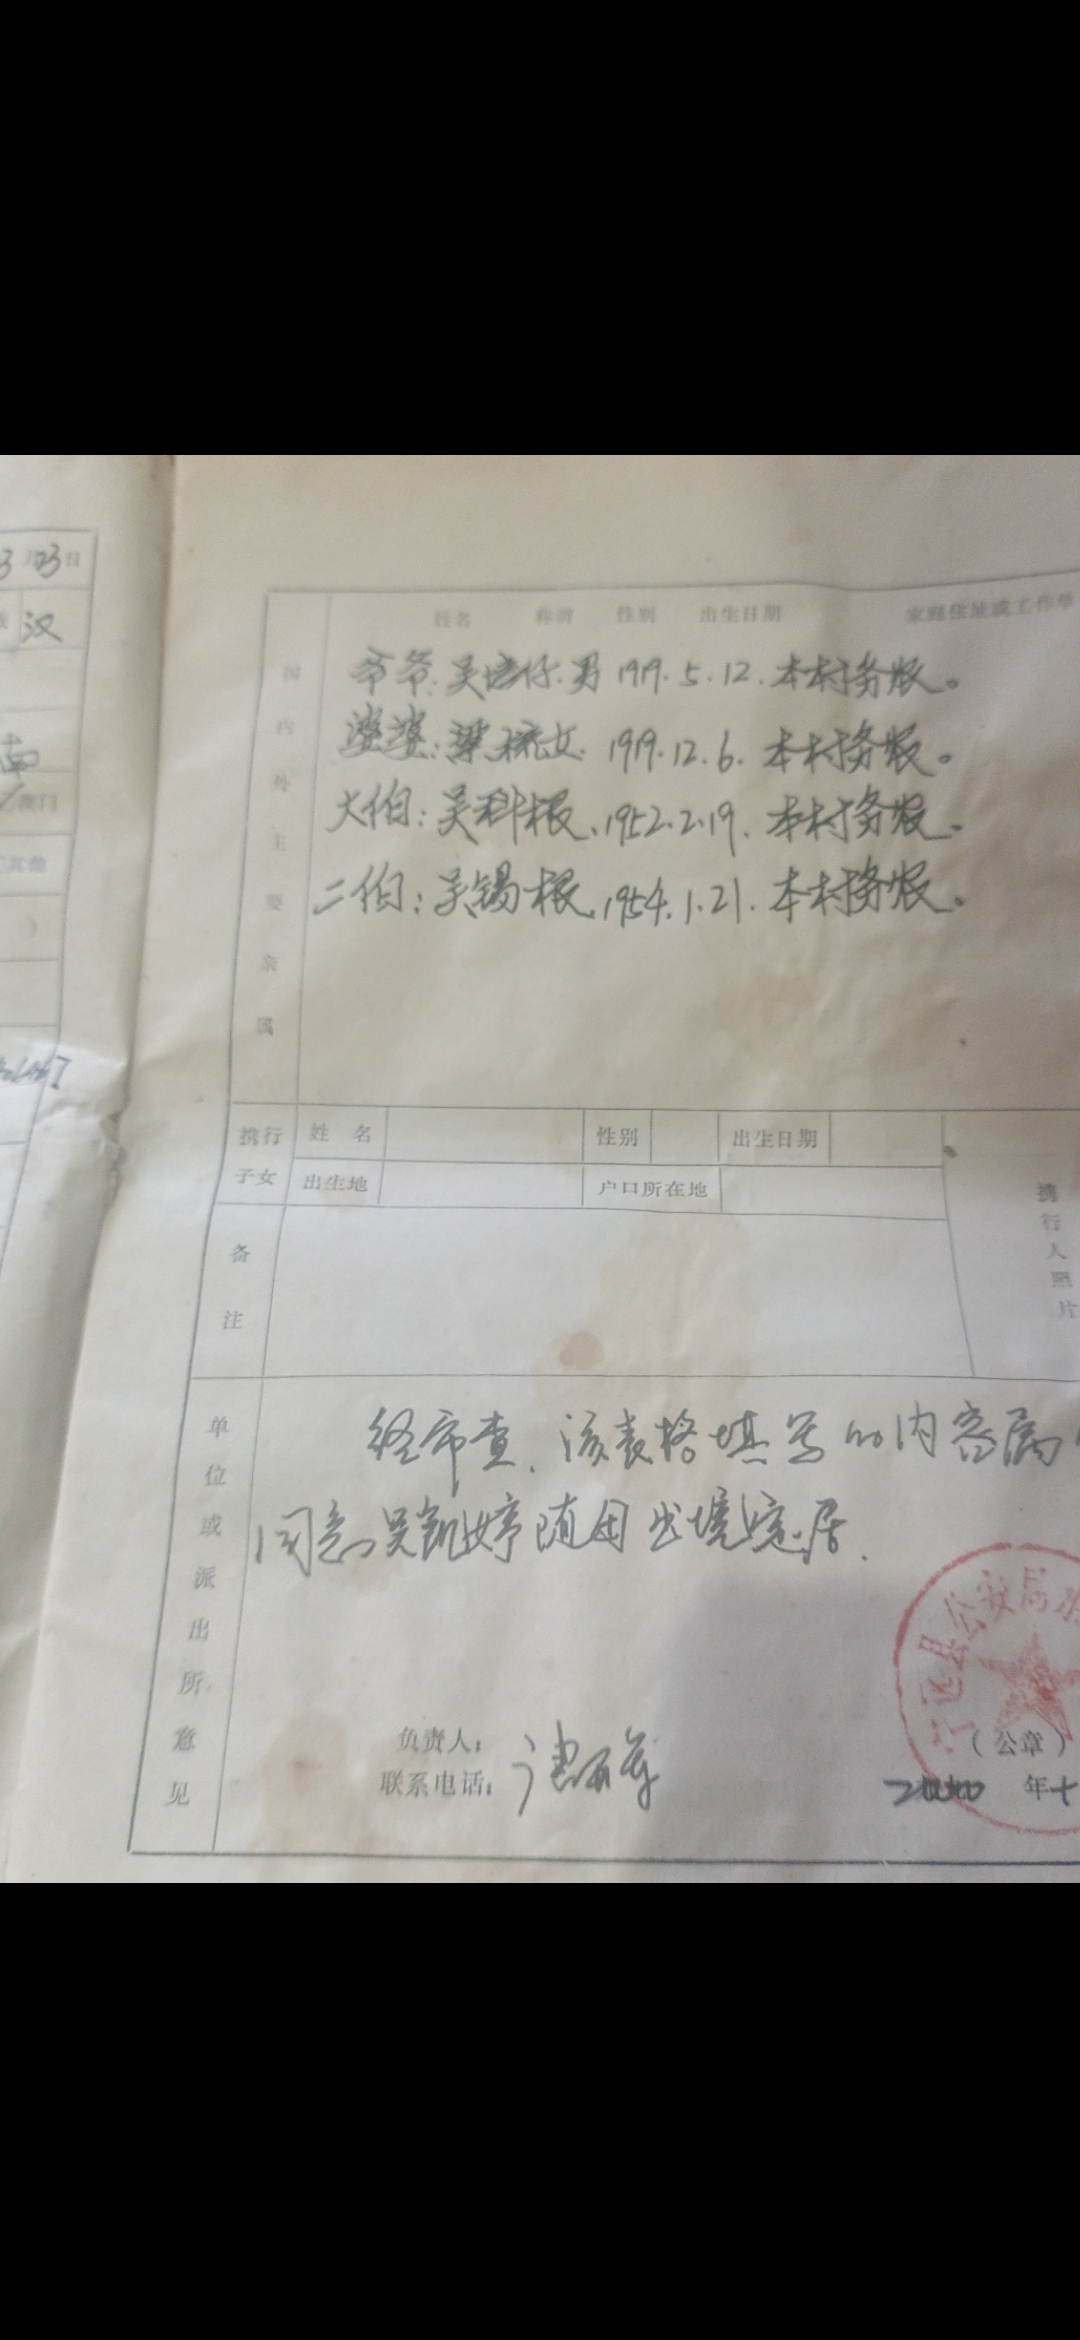 3月23日
汉
南
姓名 称谓 性别 出生日期 家庭住址或工作单
国内外主要亲属
爷爷:吴 仔.男 1919.5.12.本村务农。
婆婆:梁 女. 1919.12.6.本村务农。
大伯:吴科根、1952.2.19、本村务农。
二伯:吴锡根、1954.1.21.本村务农。
携行子女
姓名 性别 出生日期
出生地 户口所在地
携行人照片
备注
单位或派出所意见
经审查、该表格填写的内容属
同意吴凯婷随母出境定居.
负责人:
联系电话:
县公安局
(公章)
2000 年十